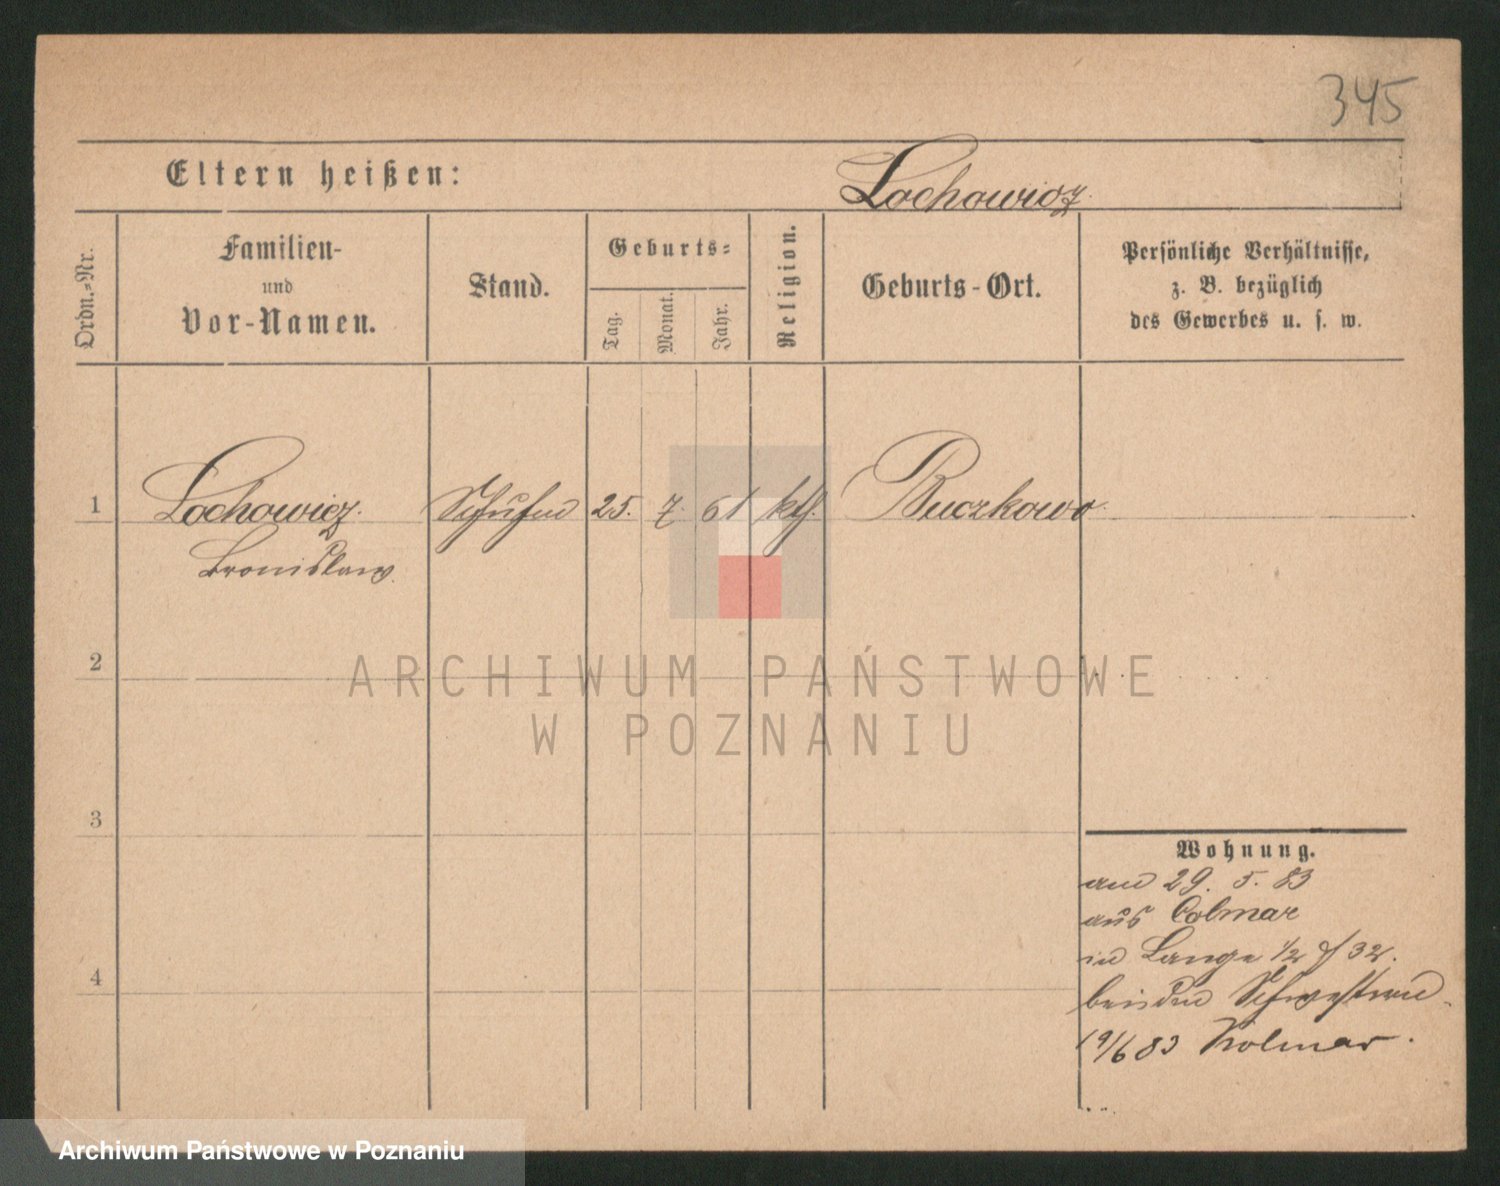 345
Eltern heißen:
Lochowicz
Ordn.-Nr.
Familien-
und
Vor-Namen.
Stand.
Geburts-
Tag.
Monat.
Jahr.
Religion.
Geburts-Ort.
Persönliche Verhältnisse,
z. B. bezüglich
des Gewerbes u. s. w.
1 Lochowicz 25. 7. 61 kth. Buczkowo
Bronislaw.
2
3
4
Wohnung.
29. 5. 83
aus Colmar
in Lange 1/2 32.
bei den Schwestern
19/6 83 Kolmar.
ARCHIWUM PAŃSTWOWE
W POZNANIU
Archiwum Państwowe w Poznaniu